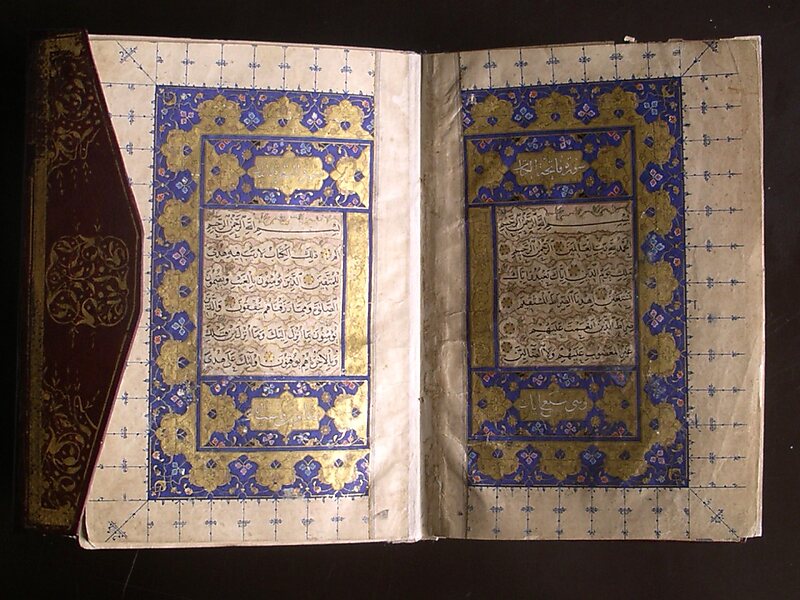 سورة فاتحة الكتاب
بسم الله الرحمن الرحيم
الحمد لله رب العالمين الرحمن الرحيم
ملك يوم الدين اياك نعبد واياك
نستعين اهدنا الصراط المستقيم
صراط الذين انعمت عليهم
غير المغضوب عليهم ولا الضالين
وهي سبع ايات
بسم الله الرحمن الرحيم
الم ذلك الكتاب لا ريب فيه هدى
للمتقين الذين يؤمنون بالغيب ويقيمون
الصلوة ومما رزقناهم ينفقون والذين
يؤمنون بما انزل اليك وما انزل من قبلك
وبالاخرة هم يوقنون اولئك على هدى